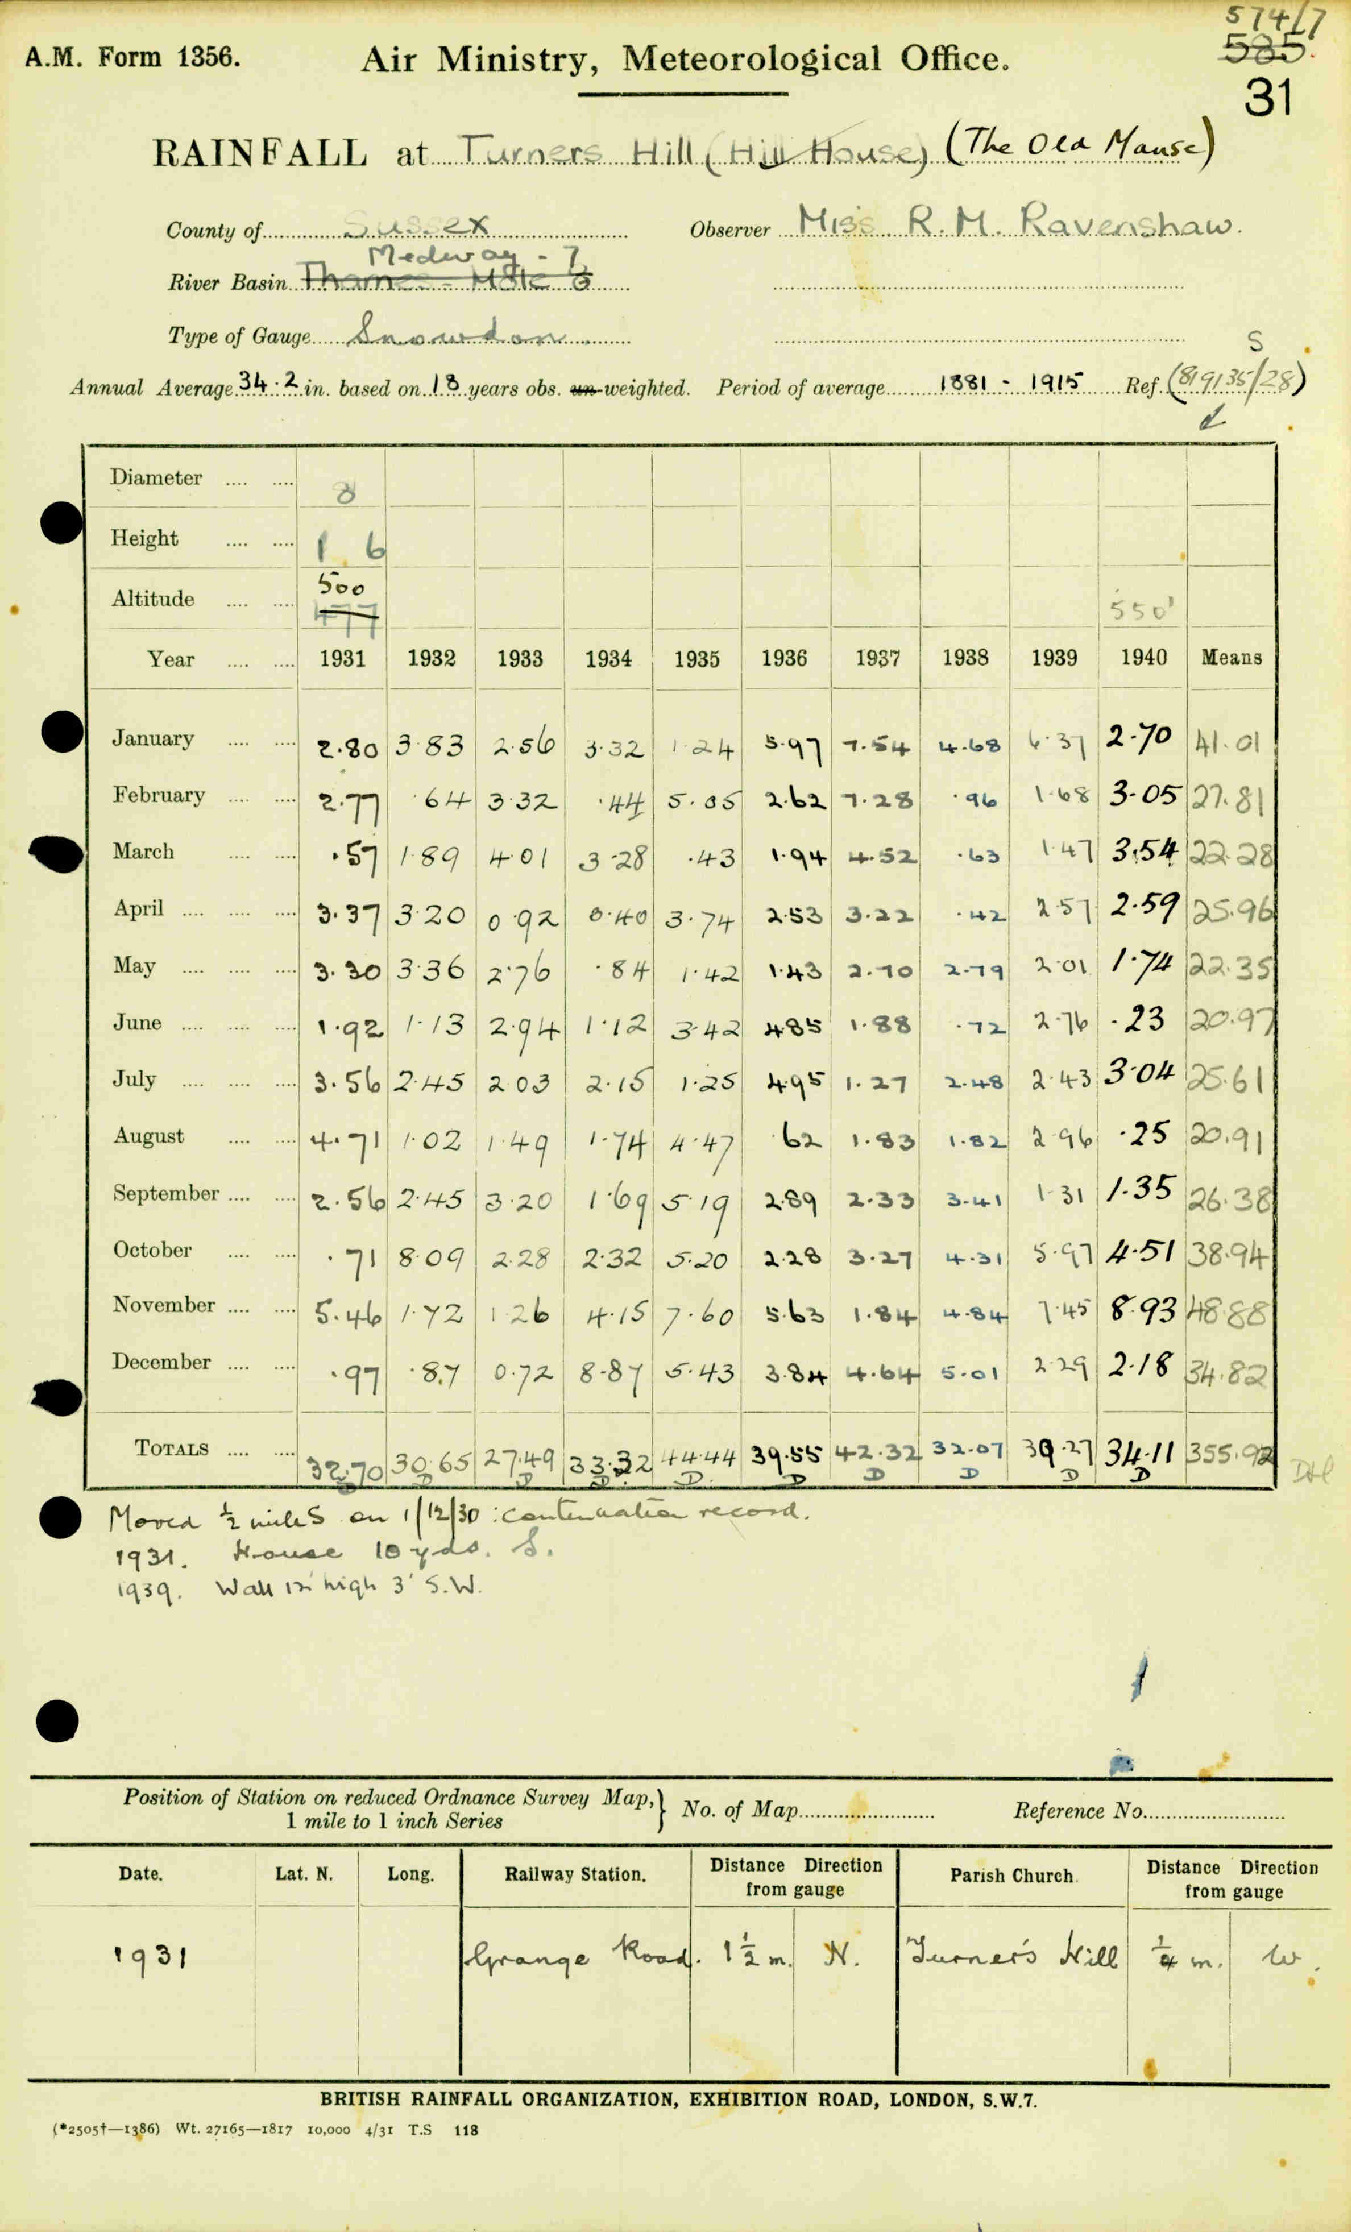 574/7
585.
A.M. Form 1356.
Air Ministry, Meteorological Office.
31
RAINFALL at Turners Hill (Hill House) (The Old Manse)
County of Sussex Observer Miss R.M. Ravenshaw.
Medway - 7
River Basin Thames - Mole 6
Type of Gauge Snowdon
S
Annual Average 34.2 in. based on 18 years obs. un-weighted. Period of average 1881 - 1915 Ref. (819135/28)
Diameter .... .... 8
Height .... .... 1 6
500
Altitude .... .... 477 550'
Year .... .... 1931 1932 1933 1934 1935 1936 1937 1938 1939 1940 Means
January .... .... 2.80 3.83 2.56 3.32 1.24 5.97 7.54 4.68 6.37 2.70 41.01
February .... .... 2.77 .64 3.32 .44 5.05 2.62 7.28 .96 1.68 3.05 27.81
March .... .... .57 1.89 4.01 3.28 .43 1.94 4.52 .63 1.47 3.54 22.28
April .... .... .... 3.37 3.20 0.92 0.40 3.74 2.53 3.22 .42 2.57 2.59 25.96
May .... .... .... 3.30 3.36 2.76 .84 1.42 1.43 2.70 2.79 2.01 1.74 22.35
June .... .... .... 1.92 1.13 2.94 1.12 3.42 4.85 1.88 .72 2.76 .23 20.97
July .... .... .... 3.56 2.45 2.03 2.15 1.25 4.95 1.27 2.48 2.43 3.04 25.61
August .... .... 4.71 1.02 1.49 1.74 4.47 .62 1.83 1.82 2.96 .25 20.91
September .... .... 2.56 2.45 3.20 1.69 5.19 2.89 2.33 3.41 1.31 1.35 26.38
October .... .... .71 8.09 2.28 2.32 5.20 2.28 3.27 4.31 5.97 4.51 38.94
November .... .... 5.46 1.72 1.26 4.15 7.60 5.63 1.84 4.84 7.45 8.93 48.88
December .... .... .97 .87 0.72 8.87 5.43 3.84 4.64 5.01 2.29 2.18 34.82
TOTALS .... .... 32.70 30.65 27.49 33.32 44.44 39.55 42.32 32.07 39.27 34.11 355.92
D D D D D D D D D D
Moved ½ miles on 1/12/30 : continuation record.
1931. House 10 yds. S.
1939. Wall 12' high 3' S.W.
Position of Station on reduced Ordnance Survey Map,} No. of Map Reference No.
1 mile to 1 inch Series
Date. Lat. N. Long. Railway Station. Distance Direction from gauge Parish Church. Distance Direction from gauge
1931 Grange Road. 1½ m. N. Turner's Hill ¼ m. W.
BRITISH RAINFALL ORGANIZATION, EXHIBITION ROAD, LONDON, S.W.7.
(*2505†—1386) Wt. 27165—1817 10,000 4/31 T.S 118